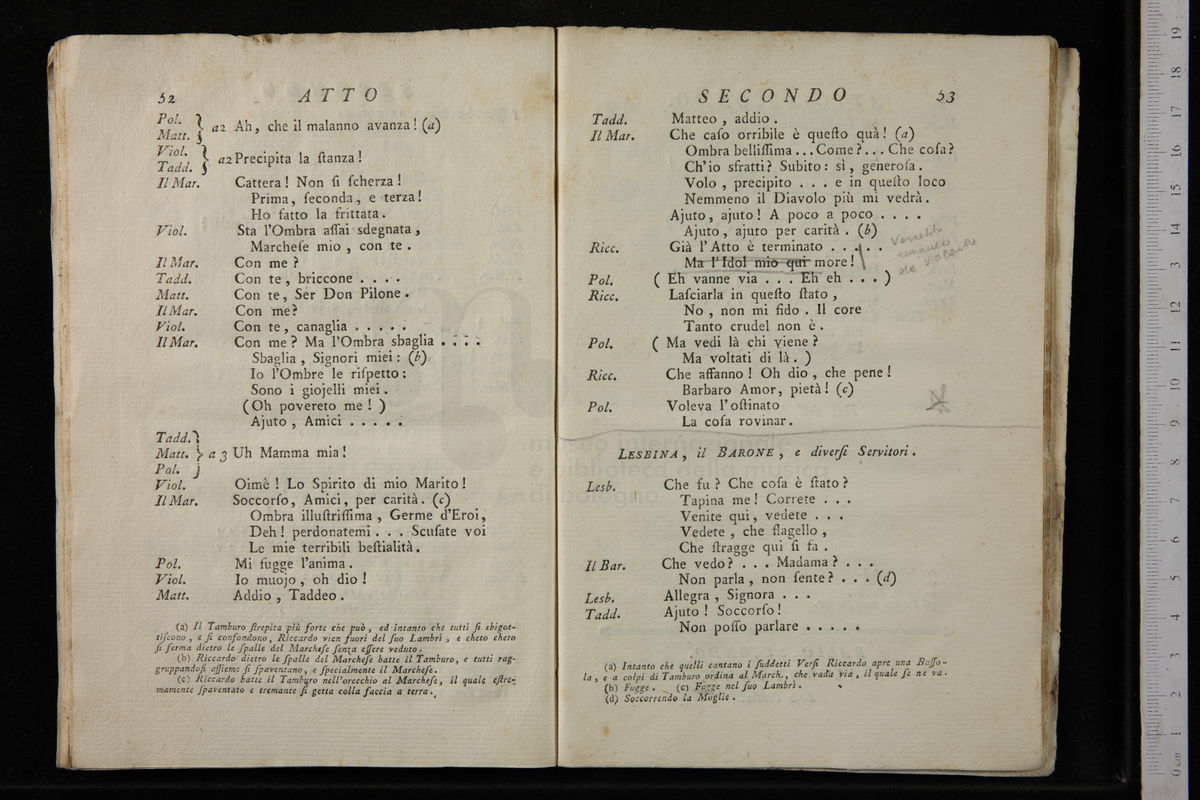 52 ATTO
Pol. Matt. } a2 Ah, che il malanno avanza! (a)
Viol. Tadd. } a2 Precipita la ſtanza!
Il Mar. Cattera! Non ſi ſcherza!
Prima, ſeconda, e terza!
Ho fatto la frittata.
Viol. Sta l'Ombra aſſai sdegnata,
Marcheſe mio, con te.
Il Mar. Con me?
Tadd. Con te, briccone . . . .
Matt. Con te, Ser Don Pilone.
Il Mar. Con me?
Viol. Con te, canaglia . . . . .
Il Mar. Con me? Ma l'Ombra sbaglia . . . .
Sbaglia, Signori miei: (b)
Io l'Ombre le riſpetto:
Sono i giojelli miei.
(Oh povereto me!)
Ajuto, Amici . . . . .
Tadd. Matt. Pol. } a 3 Uh Mamma mia!
Viol. Oimè! Lo Spirito di mio Marito!
Il Mar. Soccorſo, Amici, per carità. (c)
Ombra illuſtriſſima, Germe d'Eroi,
Deh! perdonatemi . . . Scuſate voi
Le mie terribili beſtialità.
Pol. Mi fugge l'anima.
Viol. Io muojo, oh dio!
Matt. Addio, Taddeo.
(a) Il Tamburo ſtrepita più forte che può, ed intanto che tutti ſi sbigot-
tiſcono, e ſi confondono, Riccardo vien fuori del ſuo Lambrì, e cheto cheto
ſi ferma dietro le ſpalle del Marcheſe ſenza eſſere veduto.
(b) Riccardo dietro le ſpalle del Marcheſe batte il Tamburo, e tutti rag-
gruppandoſi aſſieme ſi ſpaventano, e ſpecialmente il Marcheſe.
(c) Riccardo batte il Tamburo nell'orecchio al Marcheſe, il quale eſtre-
mamente ſpaventato e tremante ſi getta colla faccia a terra.
SECONDO 53
Tadd. Matteo, addio.
Il Mar. Che caſo orribile è queſto quà! (a)
Ombra belliſſima ... Come? ... Che coſa?
Ch'io sfratti? Subito: sì, generoſa.
Volo, precipito . . . e in queſto loco
Nemmeno il Diavolo più mi vedrà.
Ajuto, ajuto! A poco a poco . . . .
Ajuto, ajuto per carità. (b)
Ricc. Già l'Atto è terminato . . . . .
Ma l'Idol mio qui more!
Pol. (Eh vanne via . . . Eh eh . . .)
Ricc. Laſciarla in queſto ſtato,
No, non mi fido. Il core
Tanto crudel non è.
Pol. (Ma vedi là chi viene?
Ma voltati di là.)
Ricc. Che affanno! Oh dio, che pene!
Barbaro Amor, pietà! (c)
Pol. Voleva l'oſtinato
La coſa rovinar.
LESBINA, il BARONE, e diverſi Servitori.
Lesb. Che fu? Che coſa è ſtato?
Tapina me! Correte . . .
Venite qui, vedete . . .
Vedete, che flagello,
Che ſtragge qui ſi fa.
Il Bar. Che vedo? . . . Madama? . . .
Non parla, non ſente? . . . (d)
Lesb. Allegra, Signora . . .
Tadd. Ajuto! Soccorſo!
Non poſſo parlare . . . . .
(a) Intanto che quelli cantano i ſuddetti Verſi Riccardo apre una Buſſo-
la, e a colpi di Tamburo ordina al March., che vada via, il quale ſe ne va.
(b) Fugge. (c) Fugge nel ſuo Lambrì.
(d) Soccorrendo la Moglie.